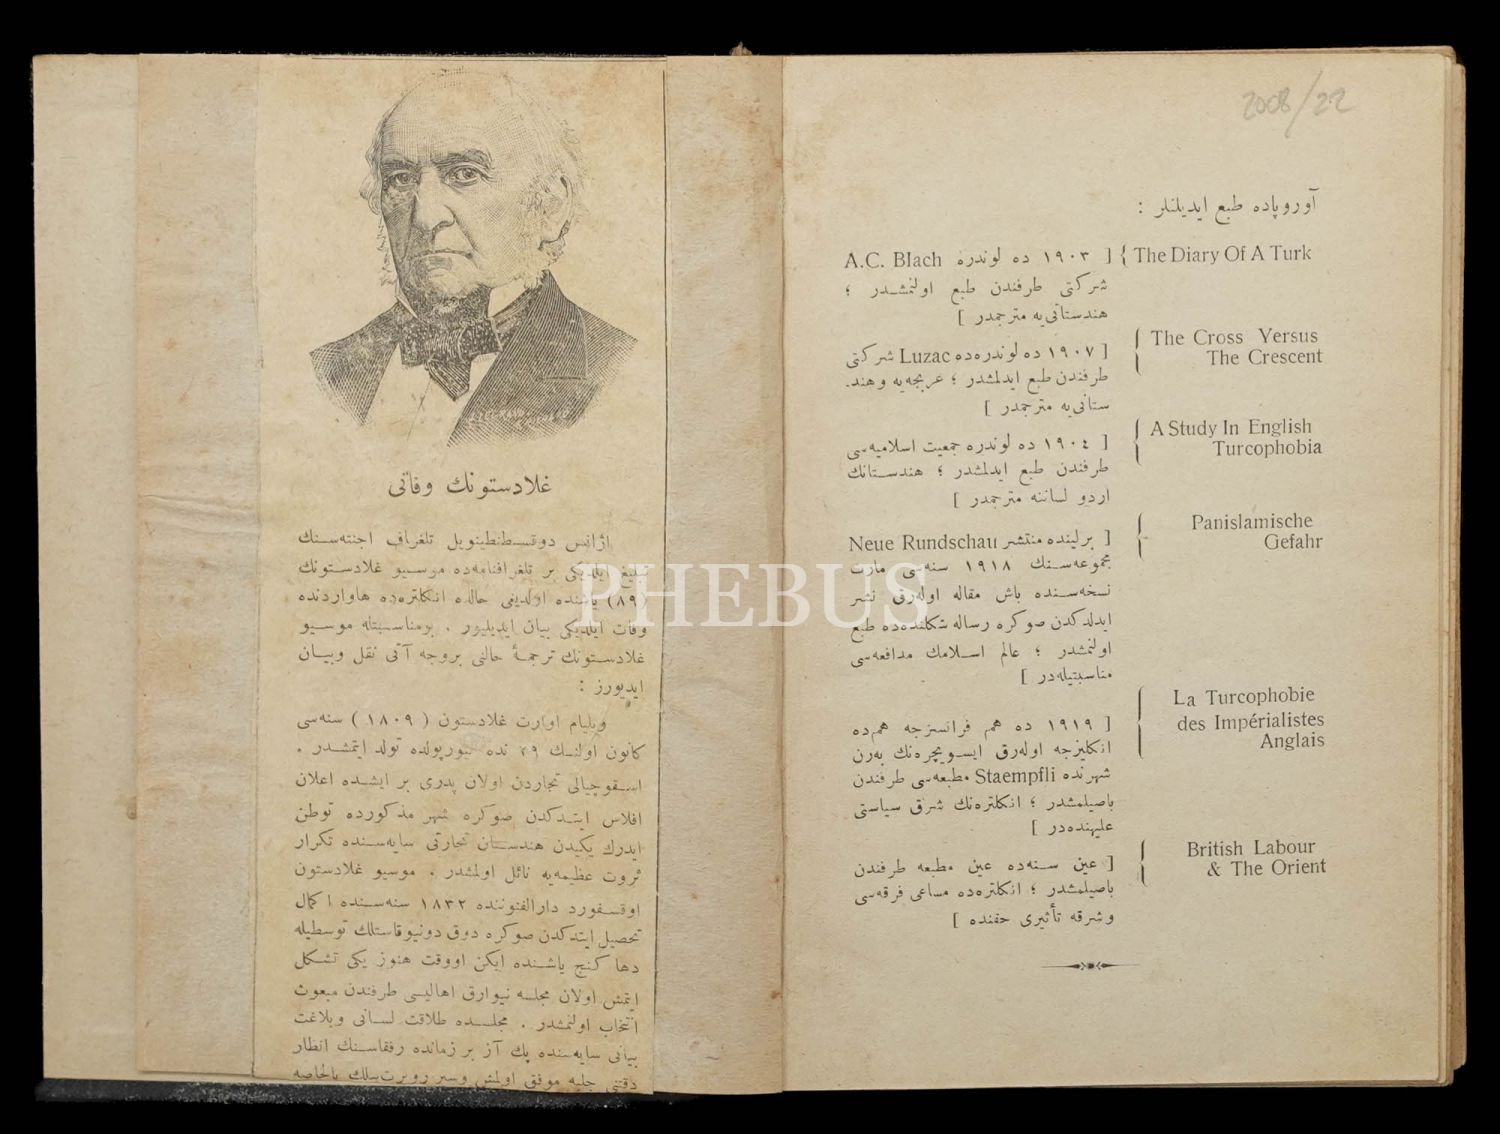 غلادستونك وفاتى
آژانس دوقسطنطينوپل تلغراف اجنته‌سنك
تبليغ ايلديكى بر تلغرافنامه‌ده موسيو غلادستونك
(٨٩) ياشنده اولديغى حالده انكلتره‌ده هاواردنده
وفات ايلديكى بيان ايديليور . بومناسبتله موسيو
غلادستونك ترجمهٔ حالنى بروجه آتى نقل وبيان
ايديورز :
ويليام اوارت غلادستون ( ١٨٠٩ ) سنه‌سى
كانون اولنك ٢٩ نده ليورپولده تولد ايتمشدر .
اسقوچيالى تجاردن اولان پدرى بر ايشده اعلان
افلاس ايتدكدن صوكره شهر مذكورده توطن
ايدرك يكيدن هندستان تجارتى سايه‌سنده تكرار
ثروت عظيمه‌يه نائل اولمشدر . موسيو غلادستون
اوقسفورد دارالفنوننده ١٨٣٢ سنه‌سنده اكمال
تحصيل ايتدكدن صوكره دوق دونيوقاستلك توسطيله
دها كنج ياشنده ايكن اووقت هنوز يكى تشكل
ايتمش اولان مجلسه نيوارق اهاليسى طرفندن مبعوث
انتخاب اولنمشدر . مجلسده طلاقت لسانى وبلاغت
بيانى سايه‌سنده پك آز بر زمانده رفقاسنك انظار
دقتنى جلبه موفق اولمش وسر روبرت پيلك بالخاصه
2008/22
آوروپاده طبع ايديلنلر :
The Diary Of A Turk } [ ١٩٠٣ ده لوندره A.C. Blach
شركتى طرفندن طبع اولنمشدر ؛
هندستانى‌يه مترجمدر ]
The Cross Yersus
The Crescent
} [ ١٩٠٧ ده لوندره‌ده Luzac شركتى
طرفندن طبع ايدلمشدر ؛ عربجه‌يه وهند.
ستانى‌يه مترجمدر ]
A Study In English
Turcophobia
} [ ١٩٠٤ ده لوندره جمعيت اسلاميه‌سى
طرفندن طبع ايدلمشدر ؛ هندستانك
اردو لساننه مترجمدر ]
Panislamische
Gefahr
} [ برلينده منتشر Neue Rundschau
مجموعه‌سنك ١٩١٨ سنه‌سى مارت
نسخه‌سنده باش مقاله اوله‌رق نشر
ايدلدكدن صوكره رساله شكلنده‌ده طبع
اولنمشدر ؛ عالم اسلامك مدافعه‌سى
مناسبتيله‌در ]
La Turcophobie
des Impérialistes
Anglais
} [ ١٩١٩ ده هم فرانسزجه هم‌ده
انكليزجه اوله‌رق ايسويچره‌نك به‌رن
شهرنده Staempfli مطبعه‌سى طرفندن
باصيلمشدر ؛ انكلتره‌نك شرق سياستى
عليهنده‌در ]
British Labour
& The Orient
} [ عين سنه‌ده عين مطبعه طرفندن
باصيلمشدر ؛ انكلتره‌ده مساعى فرقه‌سى
وشرقه تأثيرى حقنده ]
PHEBUS